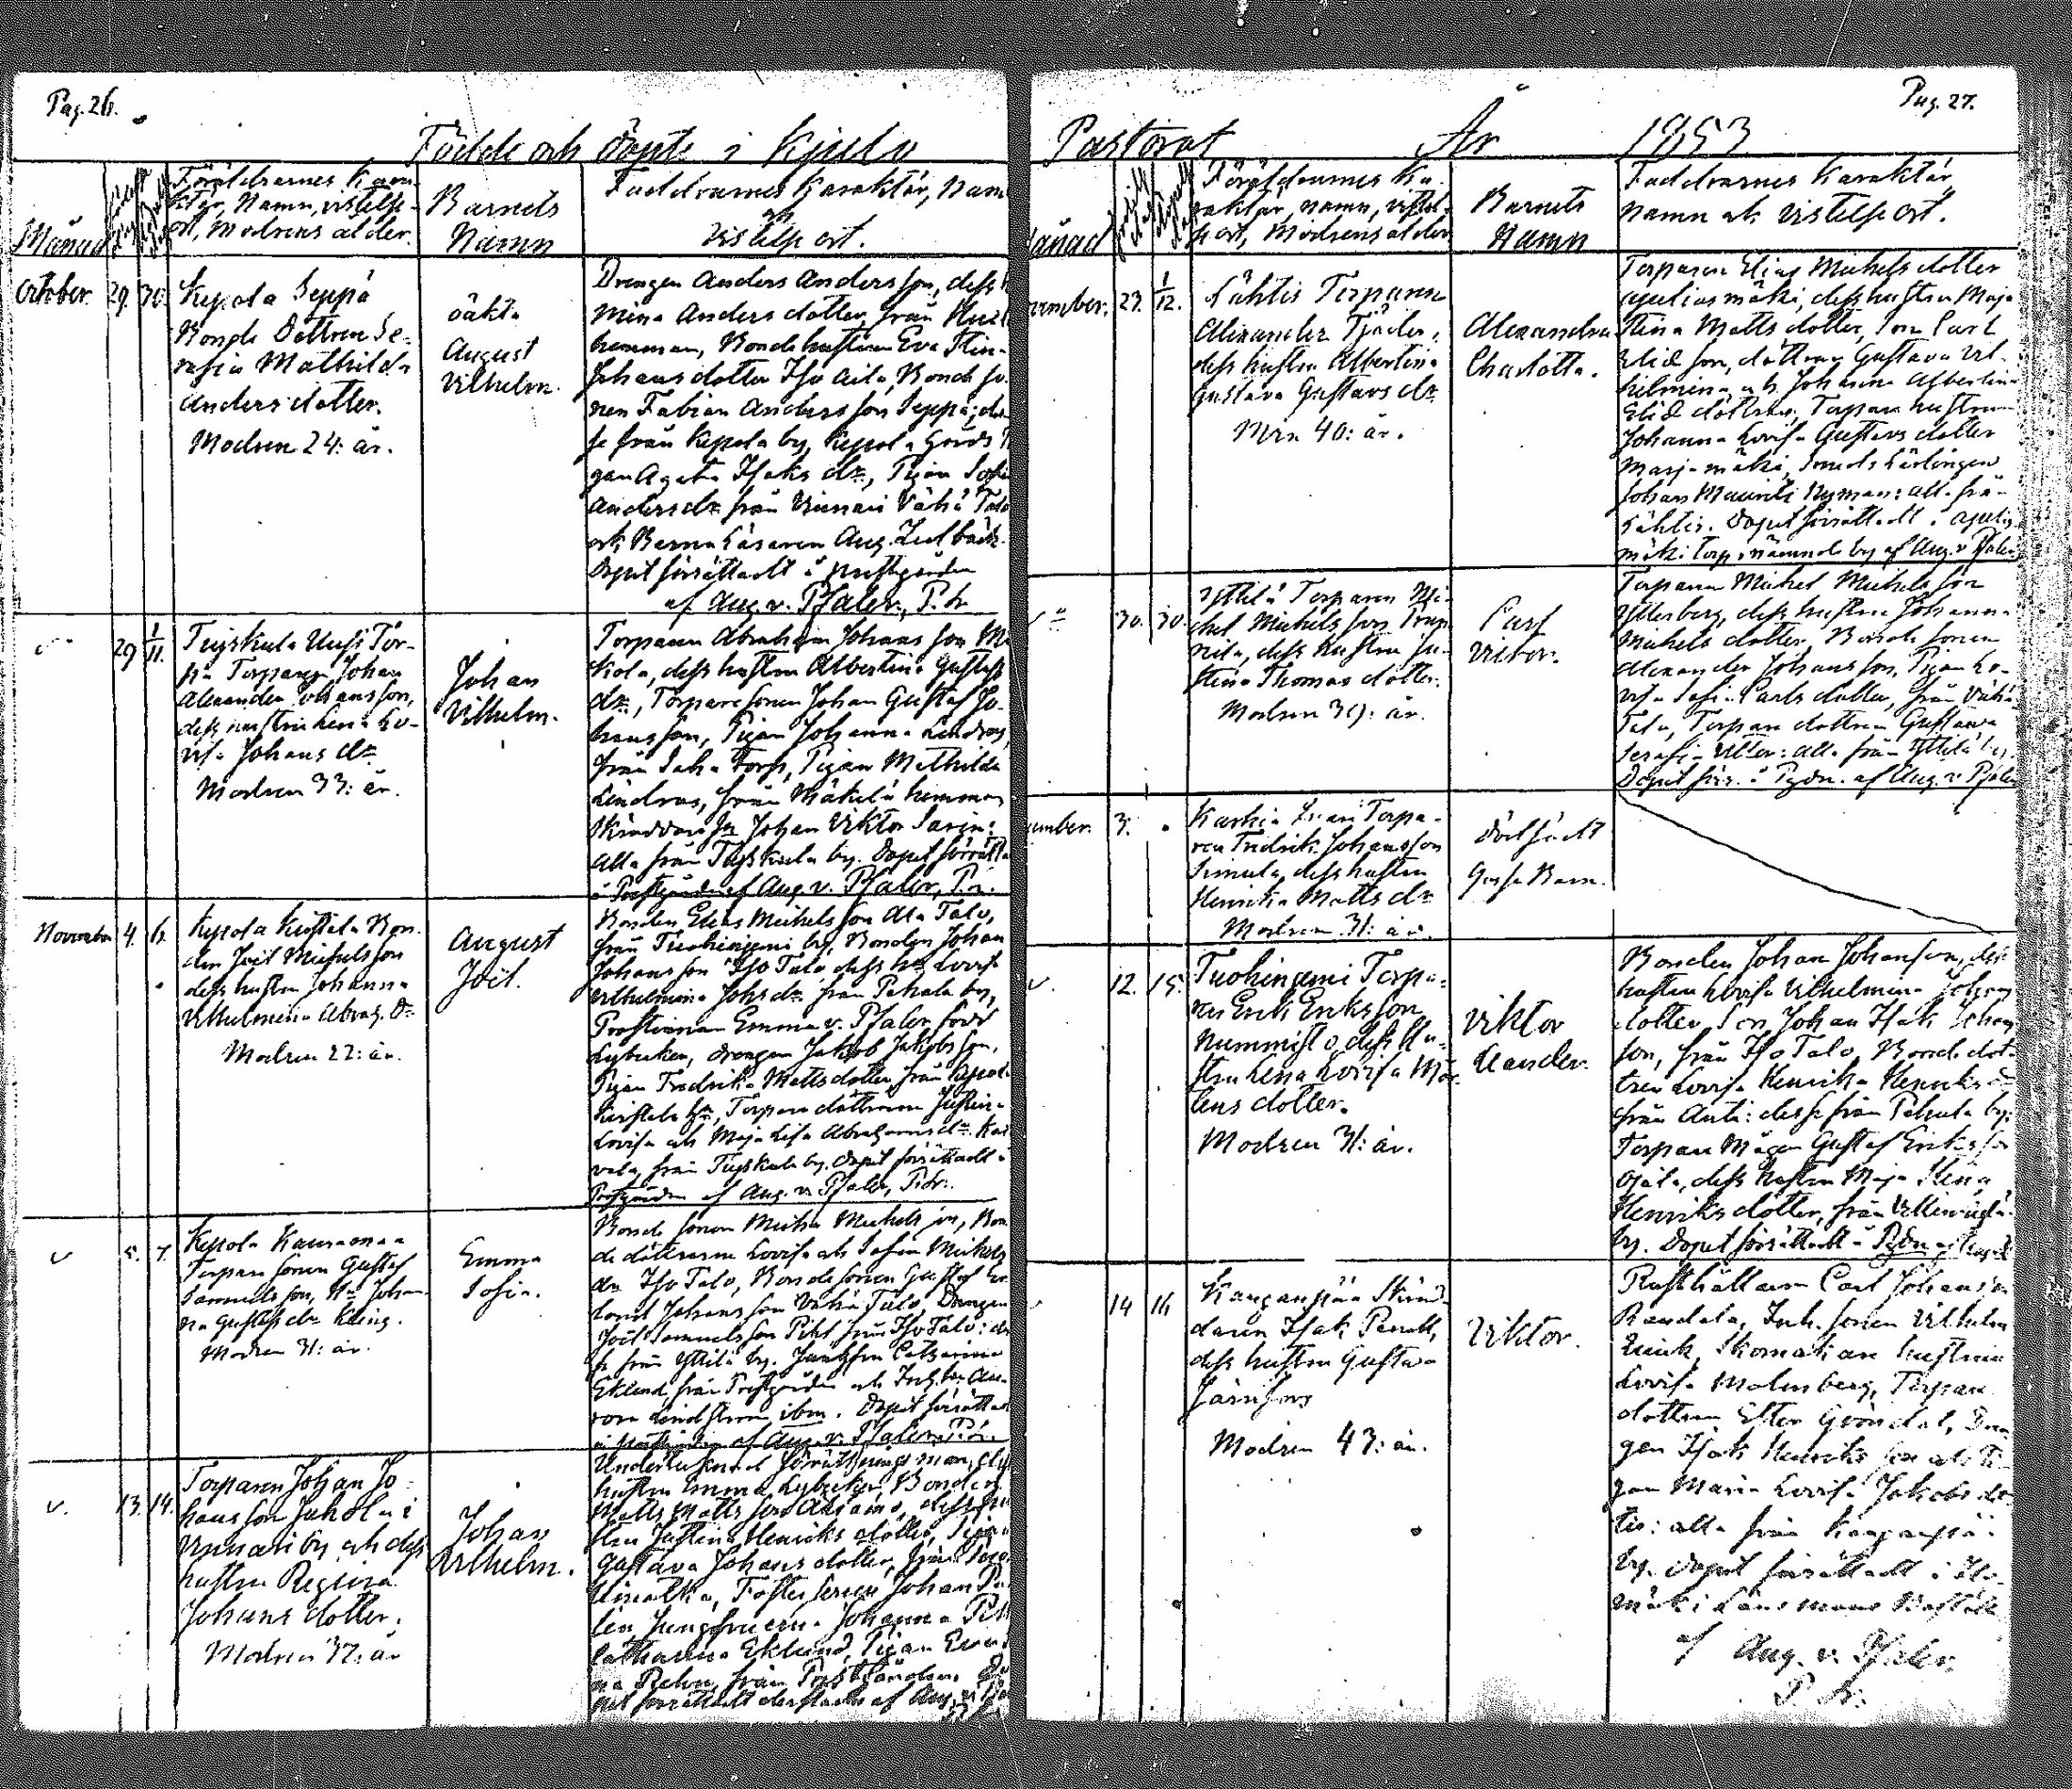 Pag. 26.
Födde och döpte i Kjulo
Månad
Föräldrarnes Karak-
tär, Namn, vistelse-
ort, Modrens ålder.
Barnets
Namn
Faddrarnes Karaktär, Namn
och
vistelse ort.
October. 29. 30.
Kepola Seppä
Bonde Dottren Se-
rafia Mathilda
Anders dotter.
Modren 24: år.
oäkta
August
Vilhelm.
Drengen Anders Andersson, dess h
Mina Anders dotter från
hemman, Bonde hustrun Eva Stin
Johans dotter Iso Aila, Bonde so-
nen Fabian Andersson Seppä; des-
se från Kepola by, Kepola Gårds
gan Agata Isaks dr, Pigan Sofia
Anders dr från Vinnari Vähä Talo
och Barna Läraren Aug. Lindbäck
Dopet förrättadt i prestgården
af Aug. v. Pfaler, P.dr
29 1/11.
Tuiskula Uusi Tor-
pa Torparen Johan
Alexander Johansson,
dess hustru Lena Lo-
visa Johans dr
Modren 33: år.
Johan
Vilhelm.
Torparen Abraham Johansson
kola, dess hustru Albertina Gustafs
dr, Torpare sonen Johan Gustaf Jo-
hansson, Pigan Johanna Lindros,
från Torp, Pigan Mathilda
Lindros, från Mäkelä hemman
Skinddare Johan Viktor Savin:
alla från Tuiskula by. Dopet förrätta
i Prestgården af Aug. v. Pfaler, P.dr.
November 4. 6.
Kepola Kustala Bon-
den Joël Michelsson
dess hustru Johanna
Vilhelmina Abrah. dr
Modren 22: år.
August
Joël.
Bonden Elias Michelsson Ala Talo,
från Tuohiniemi by, Bonden Johan
Johansson Iso Talo dess hu Lovisa
Vilhelmina Johs dr från Pehula by,
Prostinnan Emma v. Pfaler född
Lybecken, drengen Jakob Jakobsson,
Pigan Fredrika Mattsdotter från Kepola
Kustala, Torpare döttrarne Justina
Lovisa och Maja Lisa Abrahams dr
från Tuiskula by. Dopet förrättadt i
Prestgården af Aug. v. Pfaler, P.dr.
5. 7.
Kepola
Torpare sonen Gustaf
Samuelsson, Hu Johan-
na Gustafs dr Kling.
Modren 31: år.
Emma
Sofia.
Bonde sonen Michel Michelsson, Bon-
de döttrarne Lovisa och Sofia Michels
dr Iso Talo, Bonde sonen Gustaf
Johansson Vähä Talo, Drengen
Joël Samuelsson Piht från Iso Talo: des-
se från Yttilä by. Jungfrun Catharina
Eklund från Prestgården och
Lindström ibm. Dopet förrättad
i prestgården af Aug. v. Pfaler P.dr.
13. 14.
Torparen Johan Jo-
hansson Jukola i
Vinnari by och dess
hustru Regina
Johans dotter.
Modren 37: år
Johan
Vilhelm.
Undertecknad förrättningsman, dess
hustru Emma Lybecken, Bonden
Matts Mattsson dess hu-
stru Justina Henriks dotter, Pigan
Gustava Johans dotter, från
Foster sonen Johan
Jungfruerna Johanna
Catharina Eklund, Pigan
från Prestgården. Do-
pet förrättadt derstädes af Aug. v. Pfa
Pag. 27.
Pastorat År 1853
Månad
Föräldrarnes Ka-
raktär, namn, vistel-
se ort, Modrens ålder
Barnets
Namn
Faddrarnes Karaktär,
namn och vistelse ort.
vember. 27. 1/12.
Lähtis Torparen
Alexander Tjäder,
dess hustru Albertina
Gustava Gustavs dr
Mdrn 40: år.
Alexandra
Charlotta.
Torparen Elias Michels dotter
dess hustru Maja
Stina Matts dotter, son Carl
Eliasson, döttrarne Gustava Vil-
helmina, och Johanna Albertina
Elias döttrar, Torpare hustrun
Johanna Lovisa Gustavs dotter
Marjamäki, Smeds Lärlingen
Johan Maurits Nyman: alla från
Lähtis. Dopet förrättadt i
mäki torp i nämnde by af Aug. v. Pfaler
30. 30.
Yttilä Torparen Mi-
chel Michelsson
dess hustru Ju-
stina Thomas dotter.
Modren 39: år.
Carl
Viktor.
Torparen Michel Michelsson
Ytterberg, dess hustru Johanna
Michels dotter, Bonde sonen
Alexander Johansson, Pigan Lo-
visa Sofia Carls dotter, från Vähä
Talo, Torpare dottren Gustava
Serafia: alla från Yttilä by.
Dopet förr. i Pgdn. af Aug. v. Pfaler
ember. 3.
Torpa-
ren Fredrik Johansson
Simula, dess hustru
Henrika Matts dr
Modren 31: år.
Dödfödt
Gosse Barn.
12. 15.
Tuohiniemi Torpa-
ren Erik Eriksson
Nummisto, dess hu-
stru Lena Lovisa Mår-
tens dotter.
Modren 31: år.
Viktor
Leander.
Bonden Johan Johansson, dess
hustru Lovisa Vilhelmina Johans
dotter, Son Johan Isak Johans-
son, från Iso Talo, Bonde dot-
tren Lovisa Henrika Henriks dr
från Anti: desse från Pehula by:
Torpare Mågen Gustaf Eriksson
Ojala, dess hustru Maja Stina
Henriks dotter, från
by. Dopet förrättadt i Pgdn af
14 16
Kanganpää Skind-
daren Isak
dess hustru Gustava
Järnfors
Modren 43: år.
Viktor.
Rusthållaren Carl Johansson
Randala, Inh. sonen Vilhelm
Qvick, Skomakare hustrun
Lovisa Malmberg, Torpare
dottren Ester Gröndal, Dren-
gen Isak Henriksson och Pi-
gan Maria Lovisa Jakobs dot-
ter: alla från Kanganpää
by. Dopet förrättadt i
mäki Länsmans Boställe
af Aug. v. Pfaler.
P.dr.